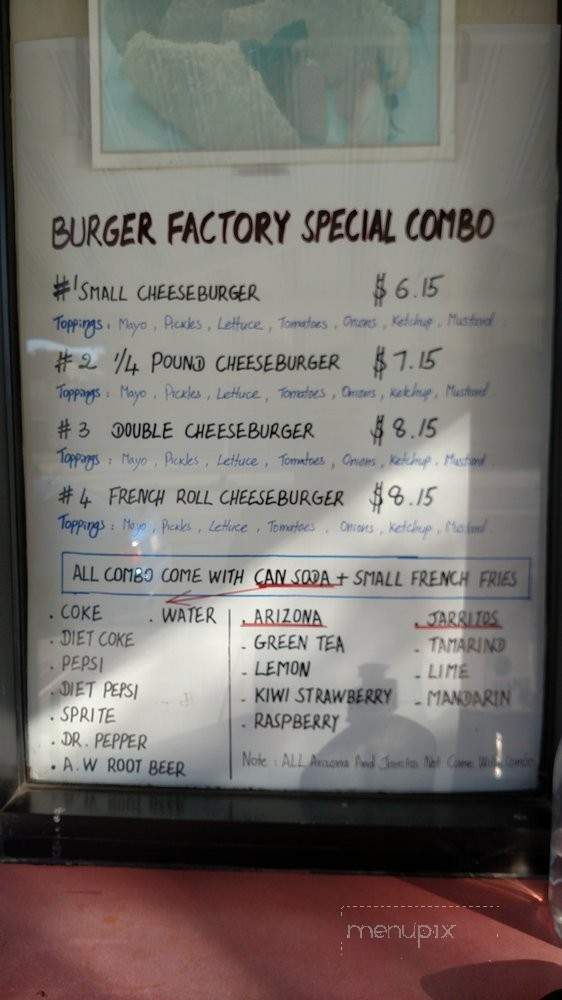 BURGER FACTORY SPECIAL COMBO
#1 SMALL CHEESEBURGER $6.15
Toppings: Mayo, Pickles, Lettuce, Tomatoes, Onions, Ketchup, Mustard
#2 1/4 POUND CHEESEBURGER $7.15
Toppings: Mayo, Pickles, Lettuce, Tomatoes, Onions, Ketchup, Mustard
#3 DOUBLE CHEESEBURGER $8.15
Toppings: Mayo, Pickles, Lettuce, Tomatoes, Onions, Ketchup, Mustard
#4 FRENCH ROLL CHEESEBURGER $8.15
Toppings: Mayo, Pickles, Lettuce, Tomatoes, Onions, Ketchup, Mustard
ALL COMBO COME WITH CAN SODA + SMALL FRENCH FRIES
. COKE . WATER
. DIET COKE
. PEPSI
. DIET PEPSI
. SPRITE
. DR. PEPPER
. A.W ROOT BEER
. ARIZONA
. GREEN TEA
. LEMON
. KIWI STRAWBERRY
. RASPBERRY
. JARRITOS
. TAMARIND
. LIME
. MANDARIN
Note: ALL Arizona And Jarritos Not Come With Combo
menupix